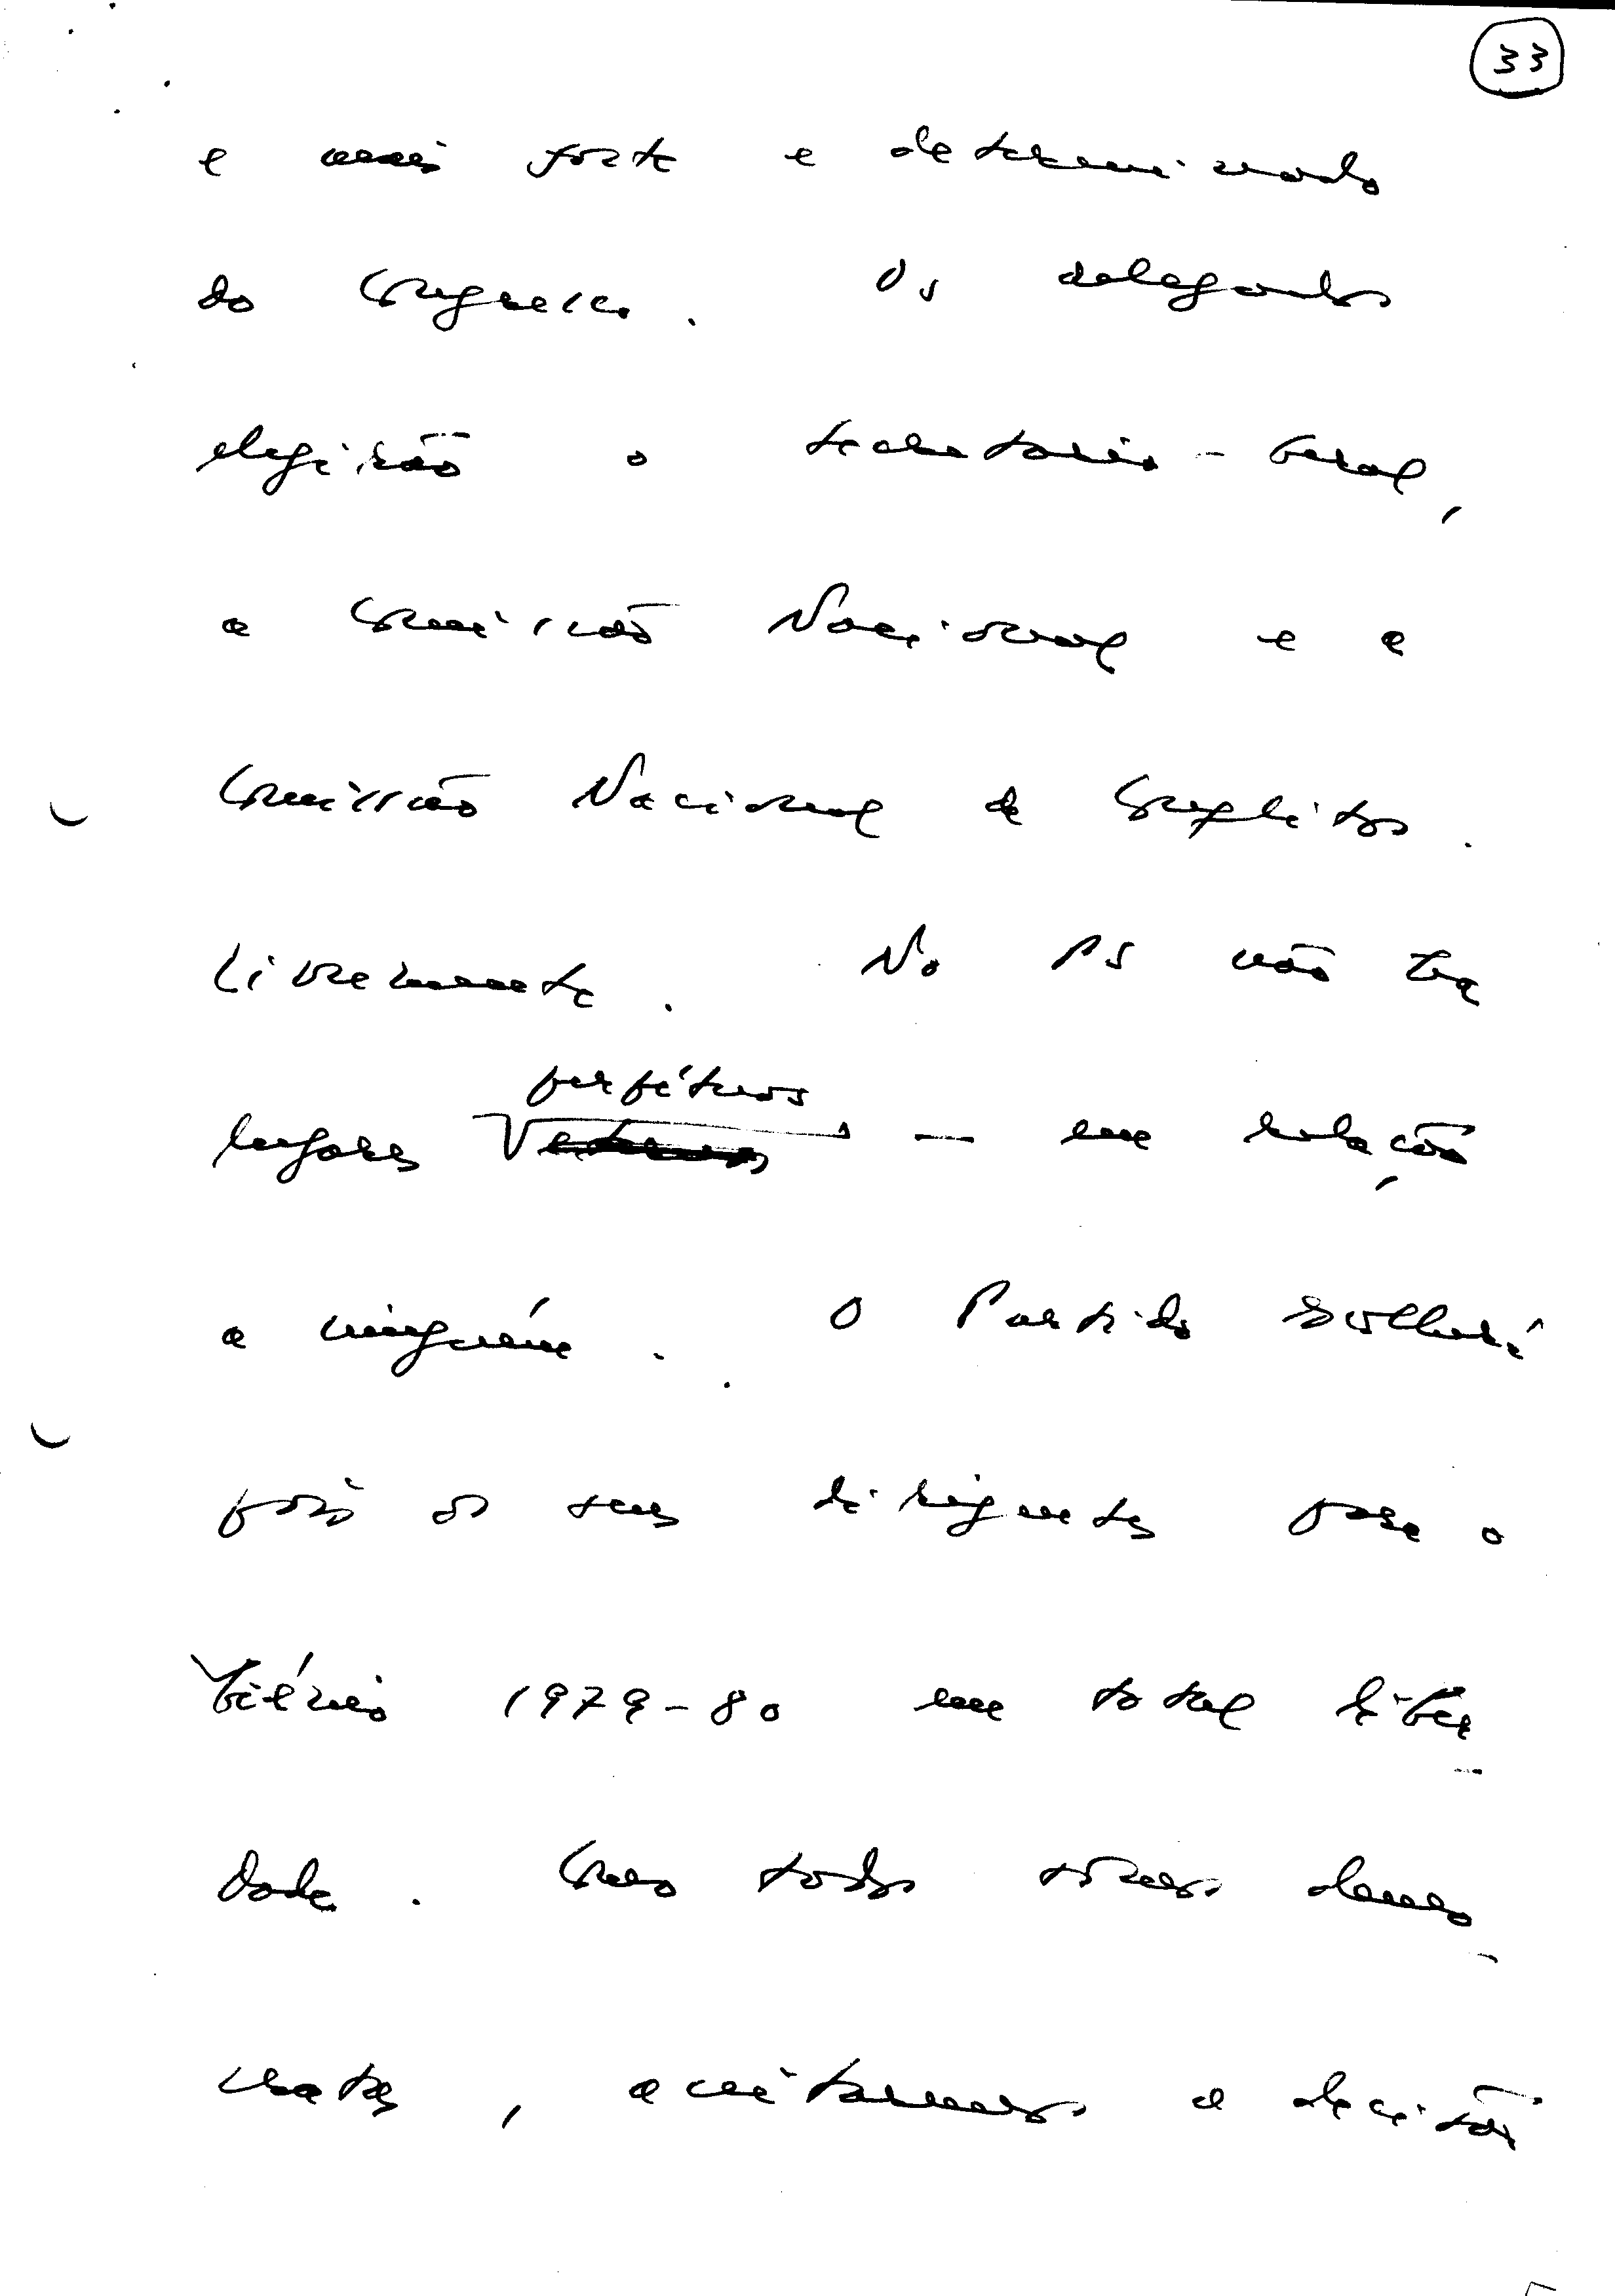 33
e mais forte e determinado
do Congresso. Os delegados
elegirão o secretário-Geral,
a Comissão Nacional e a
Comissão Nacional de Conflitos.
Livremente. No PS não há
perpétuos
lugares — em relação
a ninguém. O Partido escolherá
pois os seus dirigentes para o
biénio 1979-80 em total liber-
dade. Como todos somos demo-
cratas, aceitaremos a decisão